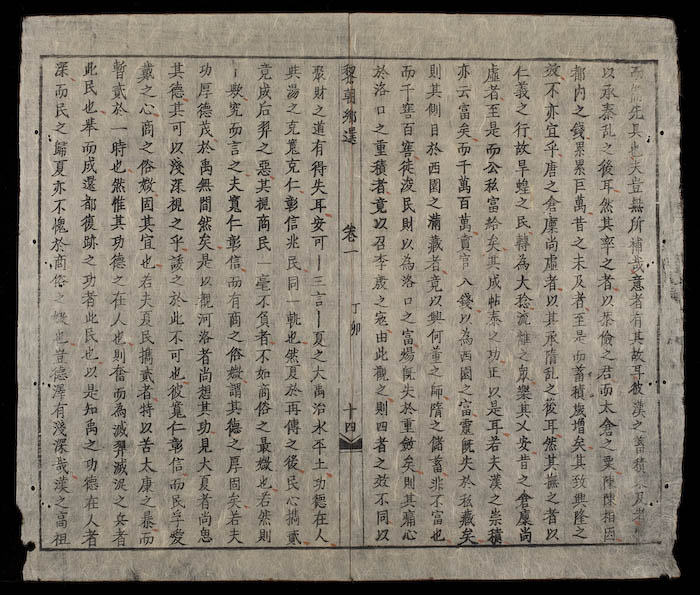 而儲先具也夫豈無所補哉意者有其故耳彼漢之蓄積未及者
以承秦乱之後耳然其率之者以恭儉之君而太倉之粟陳陳相因
都內之錢累累巨萬昔之未及者至是而蓄積歲增矣其致興隆之
效不亦宜乎唐之倉廩尚虛者以其承隋乱之後耳然其撫之者以
仁義之行故旱蝗之民轉為大稔流離之眾樂其乂安昔之倉廩尚
虛者至是而公私富給矣其成帖泰之功正以是耳若夫漢之崇積
亦云富矣而千萬百萬賣官入錢以為西園之富靈旣失於私藏矣
則其側目於西園之滿藏者竟以興何董之師隋之儲蓄非不富也
而千窖百窖徒浚民財以為洛口之富煬旣失於重斂矣則其痛心
於洛口之重積者竟以召李之寇由此觀之則四者之效不同以
黎朝鄉選 卷一 丁卯 十四
聚財之道有得失耳安可丨三言丨夏之大禹治水平土功德在人
與湯之克寬克仁彰信兆民同一軌也然夏於再傳之後民心攜貳
竟成后羿之惡其視商民一毫不負者不如商俗之最媺也若然則
丨歎究而言之夫寬仁彰信而有商之俗媺謂其德之厚固矣若夫
功厚德茂於禹無間然矣是以觀河洛者尚想其功見大夏者尚思
其德其可以淺深視之乎諉之於此不可也彼寬仁彰信而民孚愛
戴之心商之俗媺固其宜也若夫夏民攜貳者特以苦太康之暴而
暫貳於一時也然惟其功德之在人也則奮而為滅羿滅浞之兵者
此民也舉而成還都復跡之功者此民也以是知禹之功德在人者
深而民之歸夏亦不愧於商俗之媺也豈德澤有淺深哉漢之高祖